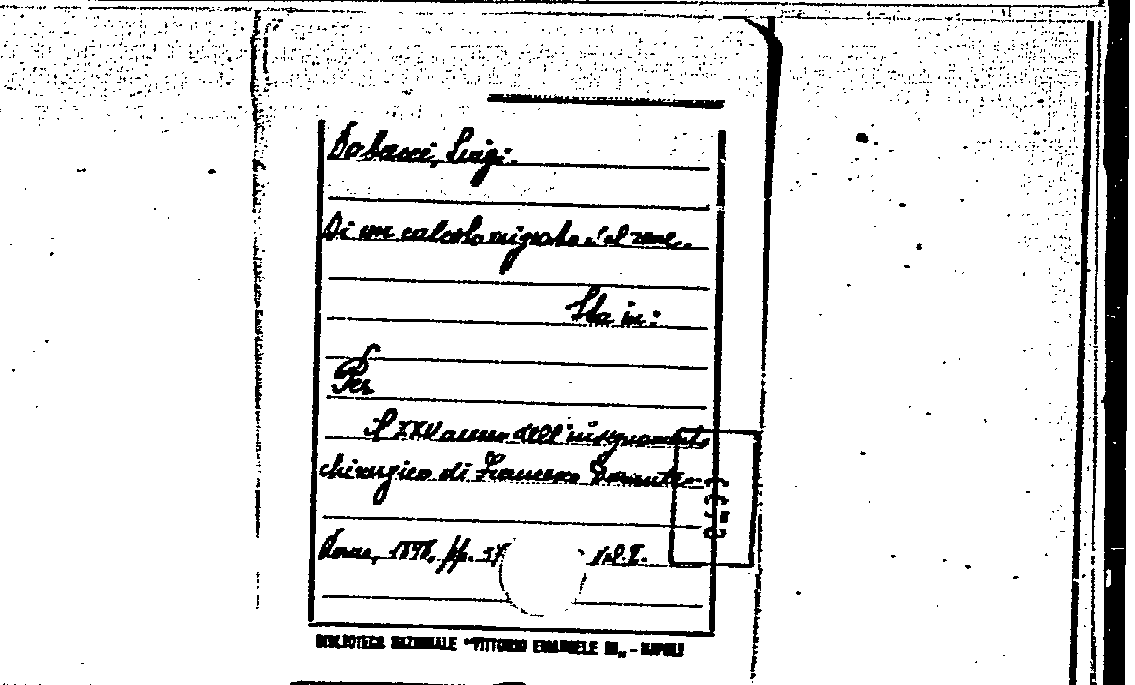 Luigi.
Di un calcolo migrato del rene.
Sta in:
Per
il XXV anno dell'insegnamento
chirurgico di Francesco Durante
Roma, 1898, pp. Vol. I.
BIBLIOTECA NAZIONALE "VITTORIO EMANUELE III„ - NAPOLI